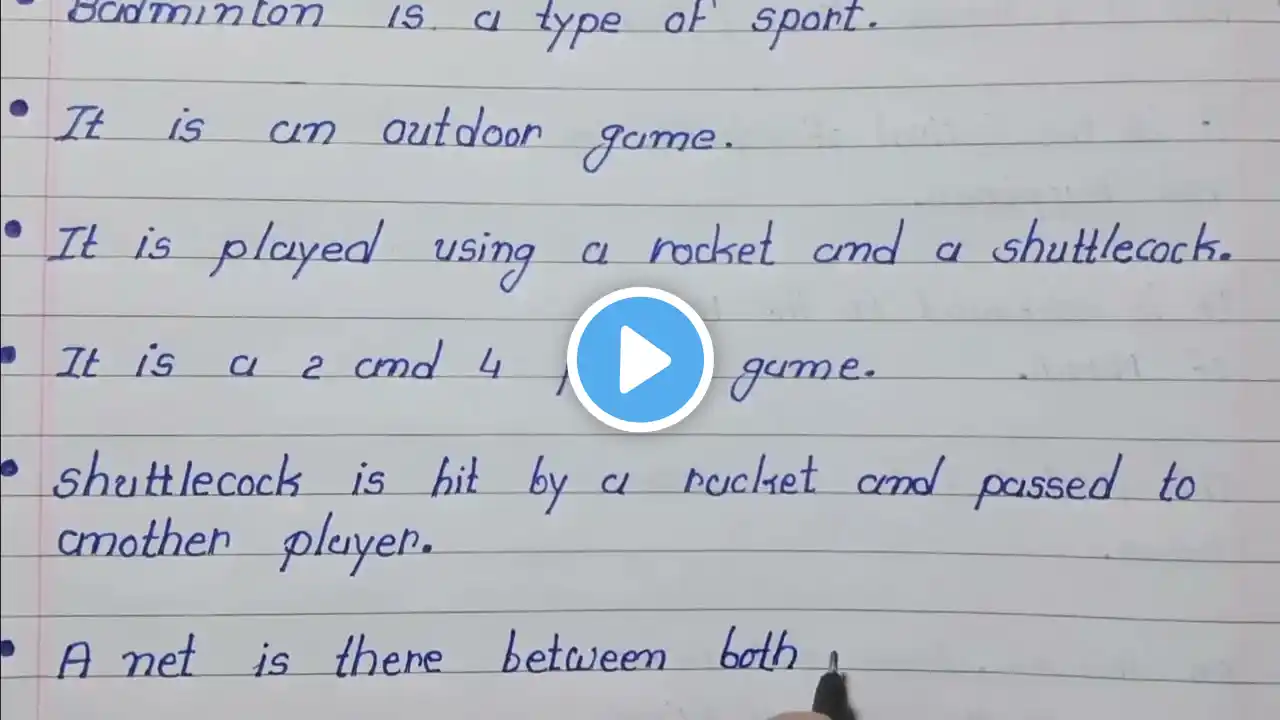 Badminton is a type of sport.
It is an outdoor game.
It is played using a rocket and a shuttlecock.
It is a 2 and 4 game.
shuttlecock is hit by a racket and passed to
another player.
A net is there between both